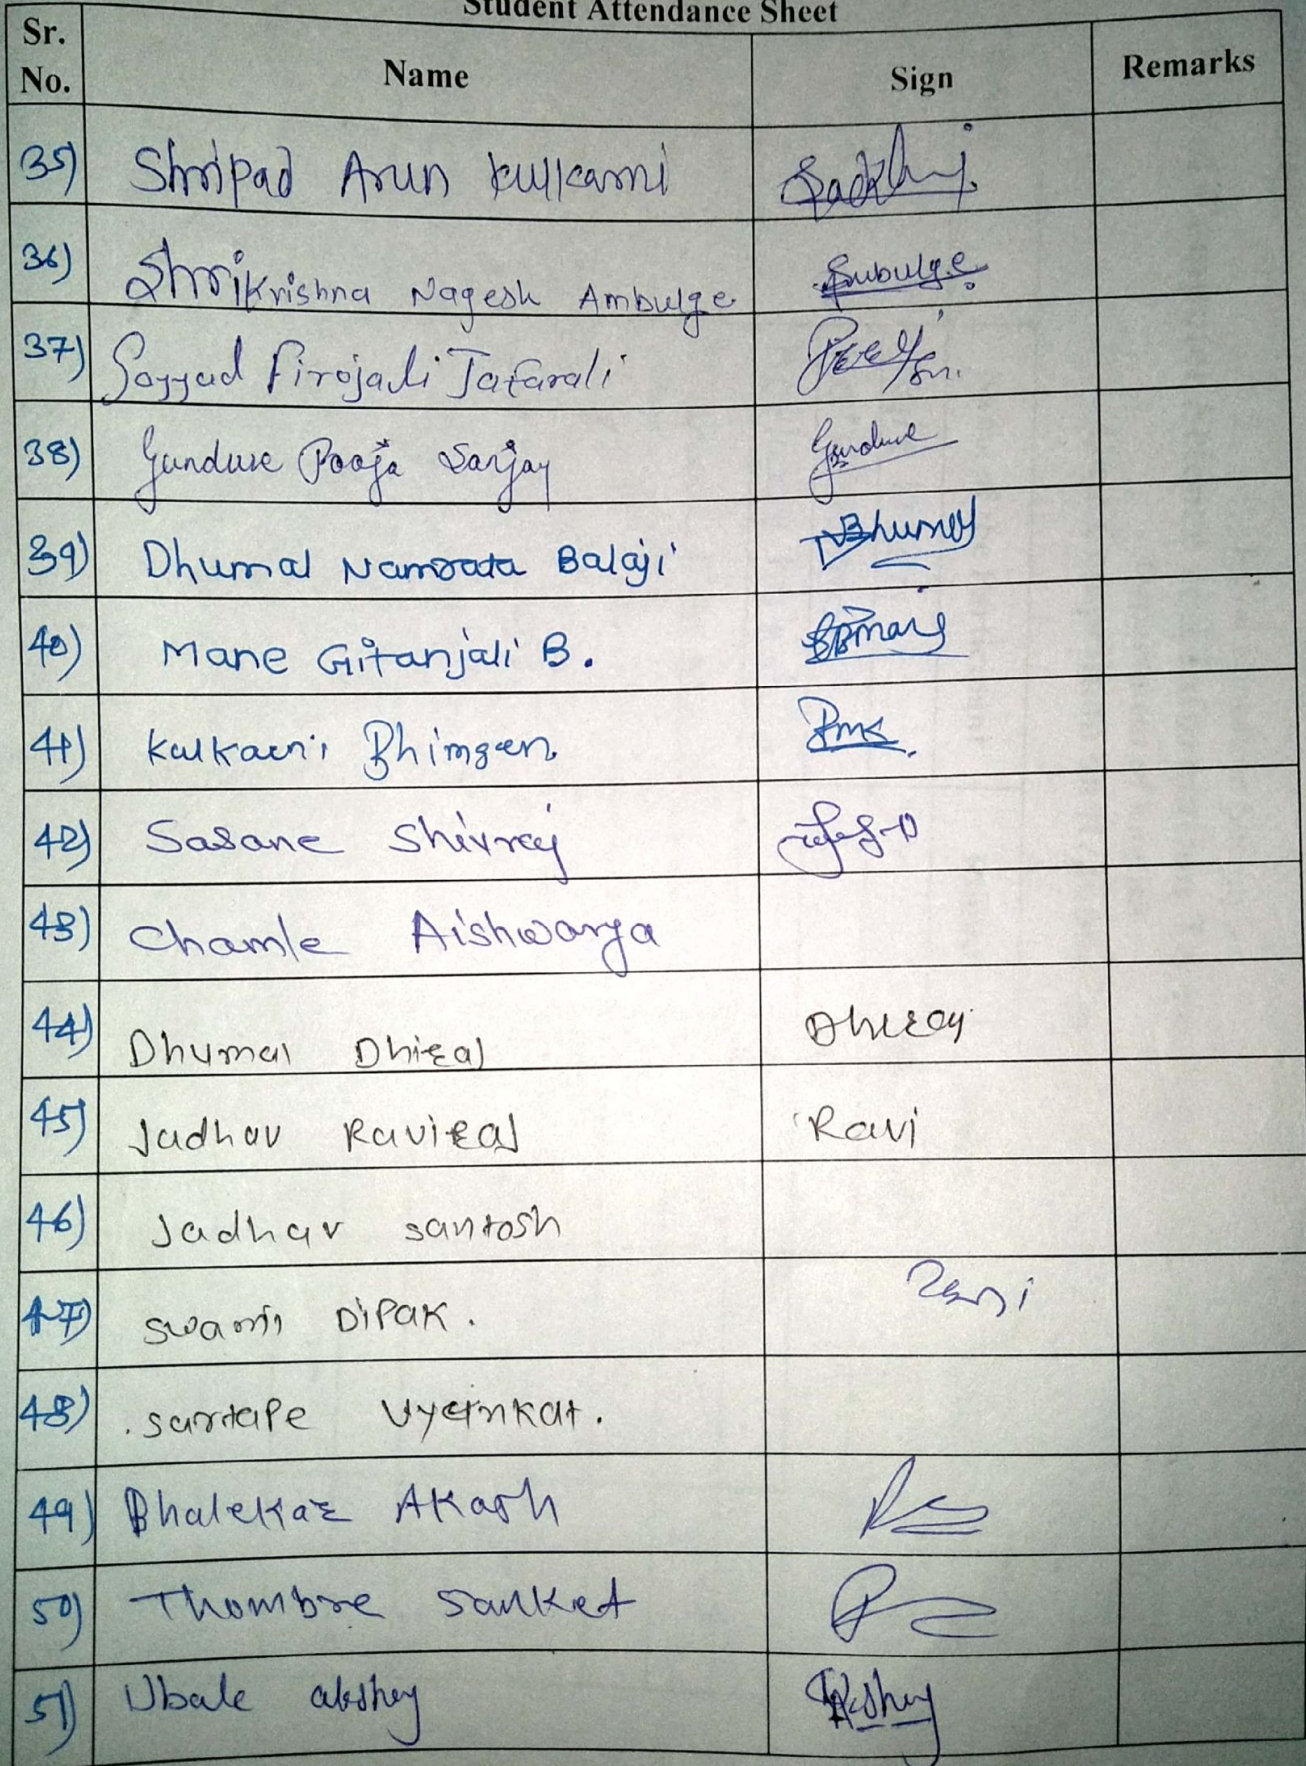 Student Attendance Sheet
Sr. No. Name Sign Remarks
35) Shripad Arun Kulkarni
36) Shrikrishna Nagesh Ambulge
37) Sayyad Firojali Jafarali
38) Gundure Pooja Sanjay Gundure
39) Dhumal Namrata Balaji
40) Mane Gitanjali B.
41) Kulkarni Bhimsen
42) Sasane Shivraj
43) Chamle Aishwarya
44) Dhumal Dhiraj Dhiraj
45) Jadhav Raviraj Ravi
46) Jadhav santosh
47) swami Dipak.
48) sartape Vyenkat.
49) Bhalekar Akash
50) Thombre Sanket
51) Ubale akshay Akshay